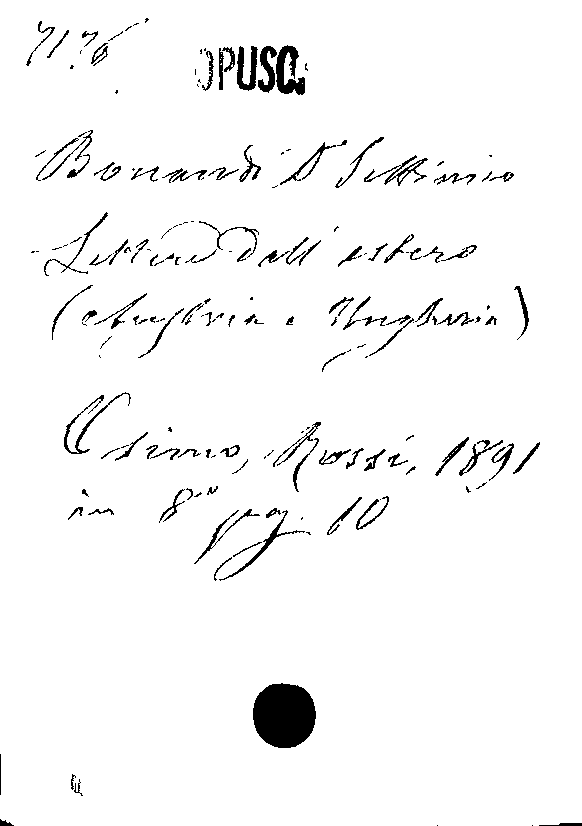 71.76.
OPUSC.
Bonandi D Settimio
Lettere dall' estero
(Austria e Ungheria)
Osimo, Rossi, 1891
in 8° pag. 10